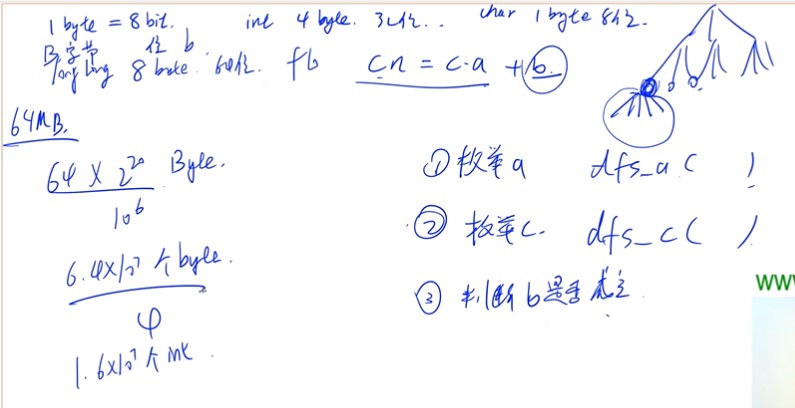 1 byte = 8 bit. int 4 byte. 32位.. char 1 byte 8位.
B 字节 位 b
long long 8 byte. 64位. fb cn = c·a + b.
64MB.
64 × 2^20 Byte.
10^6
6.4×10^7 个 byte.
4
1.6×10^7 个 int.
① 枚举a dfs_a ( )
② 枚举c. dfs_c ( )
③ 判断b是否成立
WWW